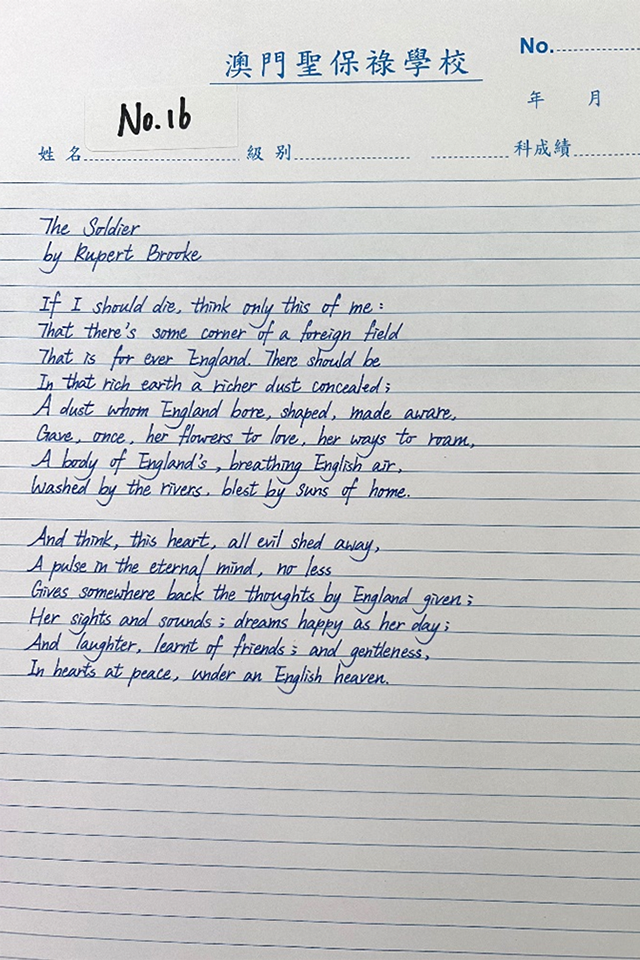 澳門聖保祿學校
No.
No.16
年 月
姓名 級別 科成績
The Soldier
by Rupert Brooke
If I should die, think only this of me:
That there's some corner of a foreign field
That is for ever England. There should be
In that rich earth a richer dust concealed;
A dust whom England bore, shaped, made aware,
Gave, once, her flowers to love, her ways to roam,
A body of England's, breathing English air,
Washed by the rivers, blest by suns of home.
And think, this heart, all evil shed away,
A pulse in the eternal mind, no less
Gives somewhere back the thoughts by England given;
Her sights and sounds; dreams happy as her day;
And laughter, learnt of friends; and gentleness,
In hearts at peace, under an English heaven.